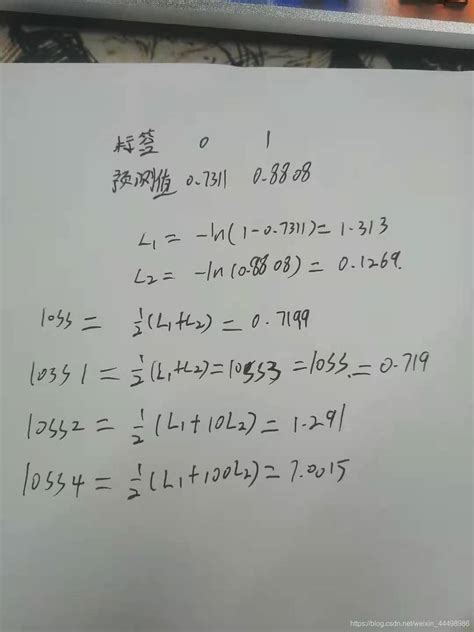 标签 0 1
预测值 0.7311 0.8808
L₁ = -ln(1-0.7311) = 1.313
L₂ = -ln(0.8808) = 0.1269.
loss = ½(L₁+L₂) = 0.7199
loss1 = ½(L₁+L₂) = loss3 = loss. = 0.719
loss2 = ½(L₁+10L₂) = 1.291
loss4 = ½(L₁+100L₂) = 7.0015
https://blog.csdn.net/weixin_44498986